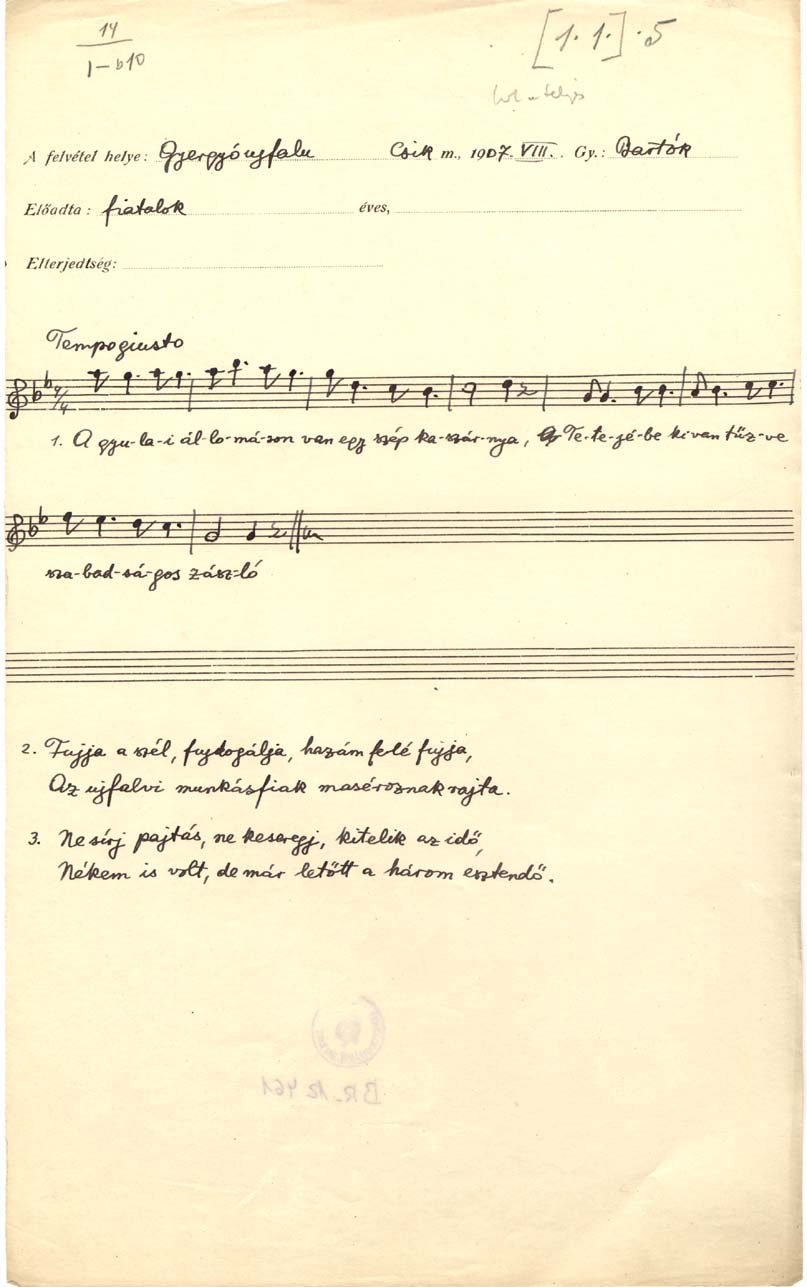 14
I–b10
[1. 1.] . 5
A felvétel helye: Gyergyóujfalu Csik m., 1907. VIII. Gy.: Bartók
Előadta: fiatalok éves,
Elterjedtség:
Tempo giusto
1. A gyu-la-i ál-lo-má-son van egy szép ka-szár-nya, Te-te-jé-be ki van tűz-ve
sza-bad-sá-gos zász-ló
2. Fujja a szél, fujdogálja, hazám felé fujja,
Az ujfalvi munkásfiak maséroznak rajta.
3. Ne sírj pajtás, ne keseregj, kitelik az idő,
Nékem is volt, de már letőtt a három esztendő.
BR-12461